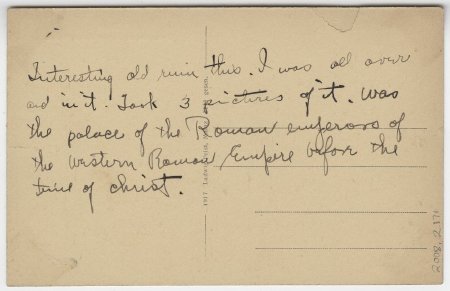 Interesting old ruin this. I was all over
and in it. Took 3 pictures of it. Was
the palace of the Roman emperors of
the western Roman Empire before the
time of Christ.
1917
2008.2.171